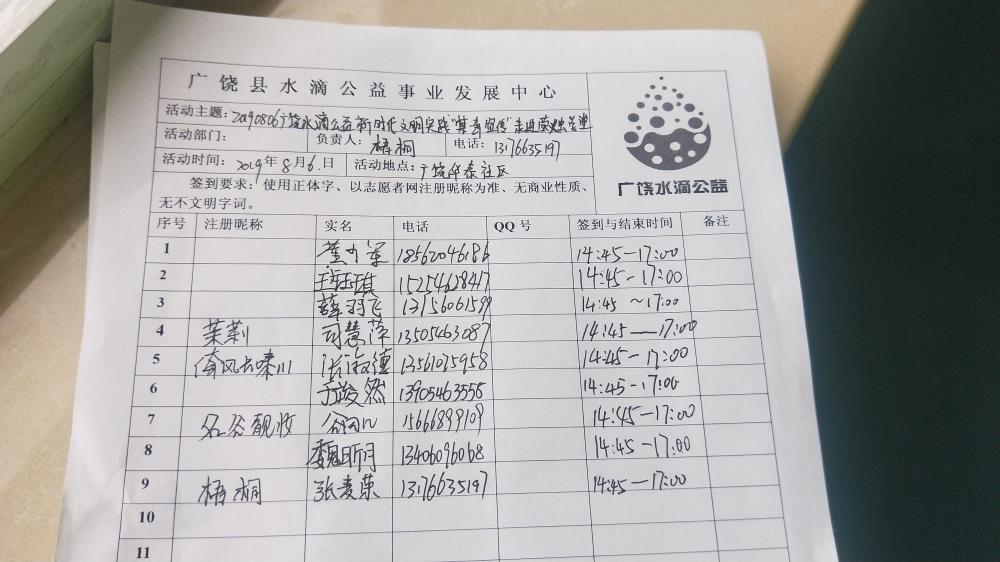 广饶县水滴公益事业发展中心
活动主题：20190806广饶水滴公益新时代文明实践"禁毒宣传"走进
活动部门： 负责人：梧桐 电话：13176635197
活动时间：2019年8月6日 活动地点：广饶华泰社区
签到要求：使用正体字、以志愿者网注册昵称为准、无商业性质、
无不文明字词。
广饶水滴公益
序号 注册昵称 实名 电话 QQ号 签到与结束时间 备注
1 董 军 18562046186 14:45-17:00
2 15254628417 14:45-17:00
3 薛羽飞 13156061599 14:45~17:00
4 茉莉 司慧萍 13505463087 14:45-17:00
5 淑德 13561075958 14:45-17:00
6 于峻然 13905463558 14:45-17:00
7 名谷靓妆 15666899109 14:45-17:00
8 魏昕月 13406096068 14:45-17:00
9 梧桐 张麦荣 13176635197 14:45-17:00
10
11